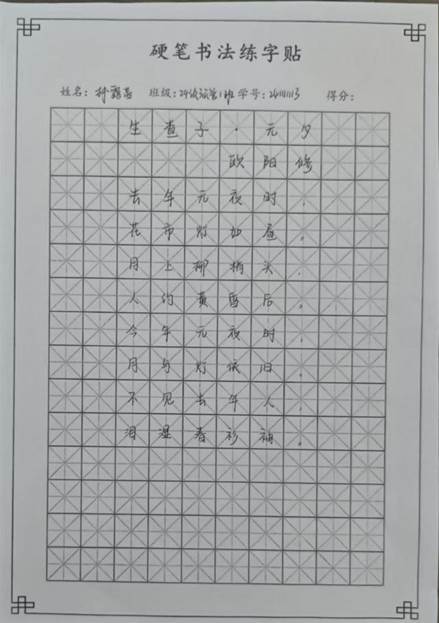 硬笔书法练字贴
姓名： 班级： 学号： 得分：
生查子·元夕
欧阳修
去年元夜时，
花市灯如昼。
月上柳梢头，
人约黄昏后。
今年元夜时，
月与灯依旧。
不见去年人，
泪湿春衫袖。